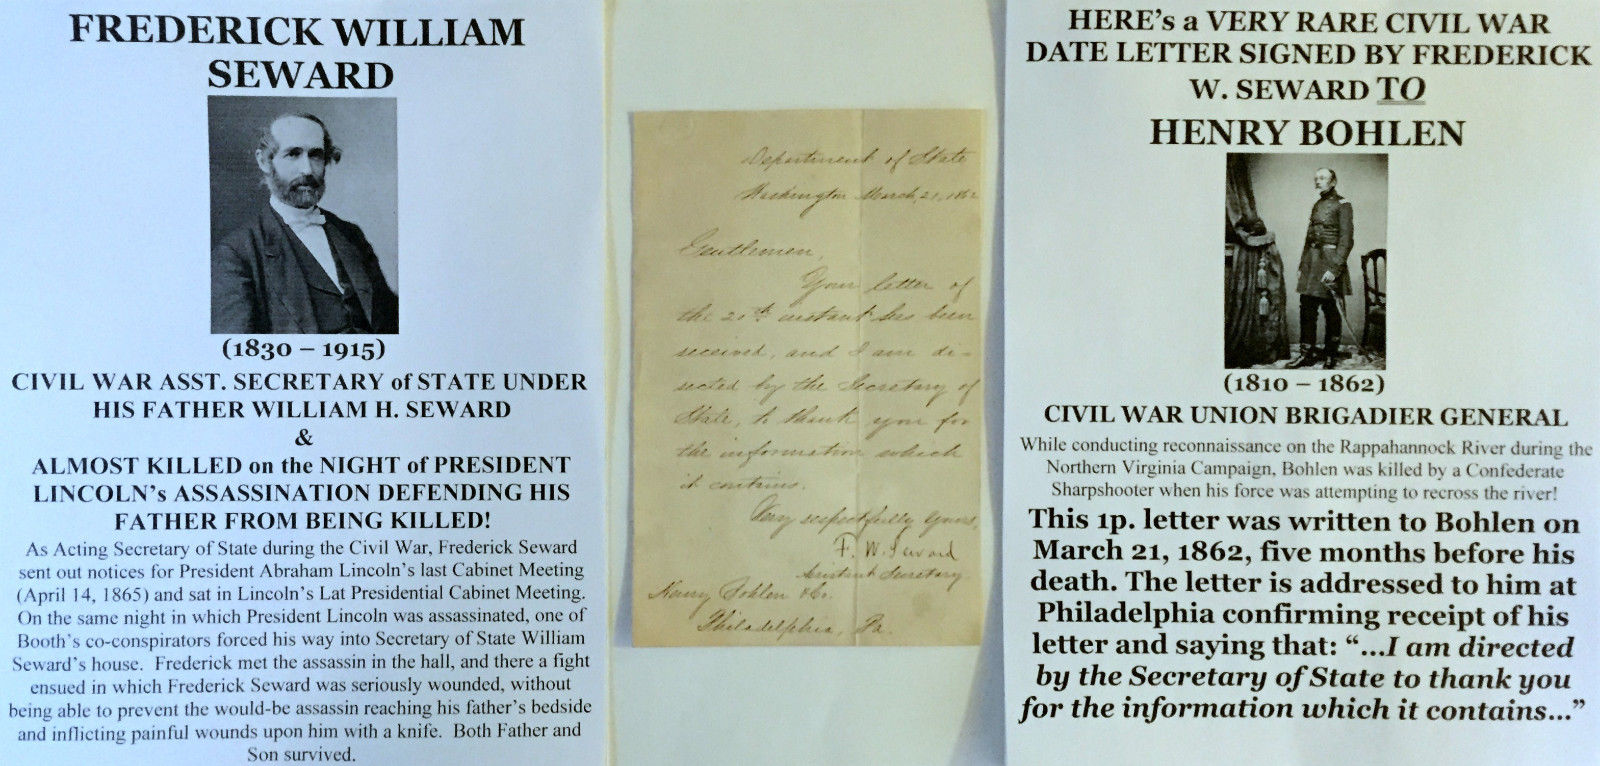 FREDERICK WILLIAM
SEWARD
(1830 – 1915)
CIVIL WAR ASST. SECRETARY of STATE UNDER
HIS FATHER WILLIAM H. SEWARD
&
ALMOST KILLED on the NIGHT of PRESIDENT
LINCOLN's ASSASSINATION DEFENDING HIS
FATHER FROM BEING KILLED!
As Acting Secretary of State during the Civil War, Frederick Seward
sent out notices for President Abraham Lincoln's last Cabinet Meeting
(April 14, 1865) and sat in Lincoln's Lat Presidential Cabinet Meeting.
On the same night in which President Lincoln was assassinated, one of
Booth's co-conspirators forced his way into Secretary of State William
Seward's house. Frederick met the assassin in the hall, and there a fight
ensued in which Frederick Seward was seriously wounded, without
being able to prevent the would-be assassin reaching his father's bedside
and inflicting painful wounds upon him with a knife. Both Father and
Son survived.
Department of State
Washington March, 21, 1862
Gentlemen,
Your letter of
the 20th instant has been
received, and I am di-
rected by the Secretary of
State, to thank you for
the information which
it contains.
Very respectfully Yours,
F. W. Seward
Assistant Secretary.
Henry Bohlen & Co.
Philadelphia, Pa.
HERE's a VERY RARE CIVIL WAR
DATE LETTER SIGNED BY FREDERICK
W. SEWARD TO
HENRY BOHLEN
(1810 – 1862)
CIVIL WAR UNION BRIGADIER GENERAL
While conducting reconnaissance on the Rappahannock River during the
Northern Virginia Campaign, Bohlen was killed by a Confederate
Sharpshooter when his force was attempting to recross the river!
This 1p. letter was written to Bohlen on
March 21, 1862, five months before his
death. The letter is addressed to him at
Philadelphia confirming receipt of his
letter and saying that: “...I am directed
by the Secretary of State to thank you
for the information which it contains...”